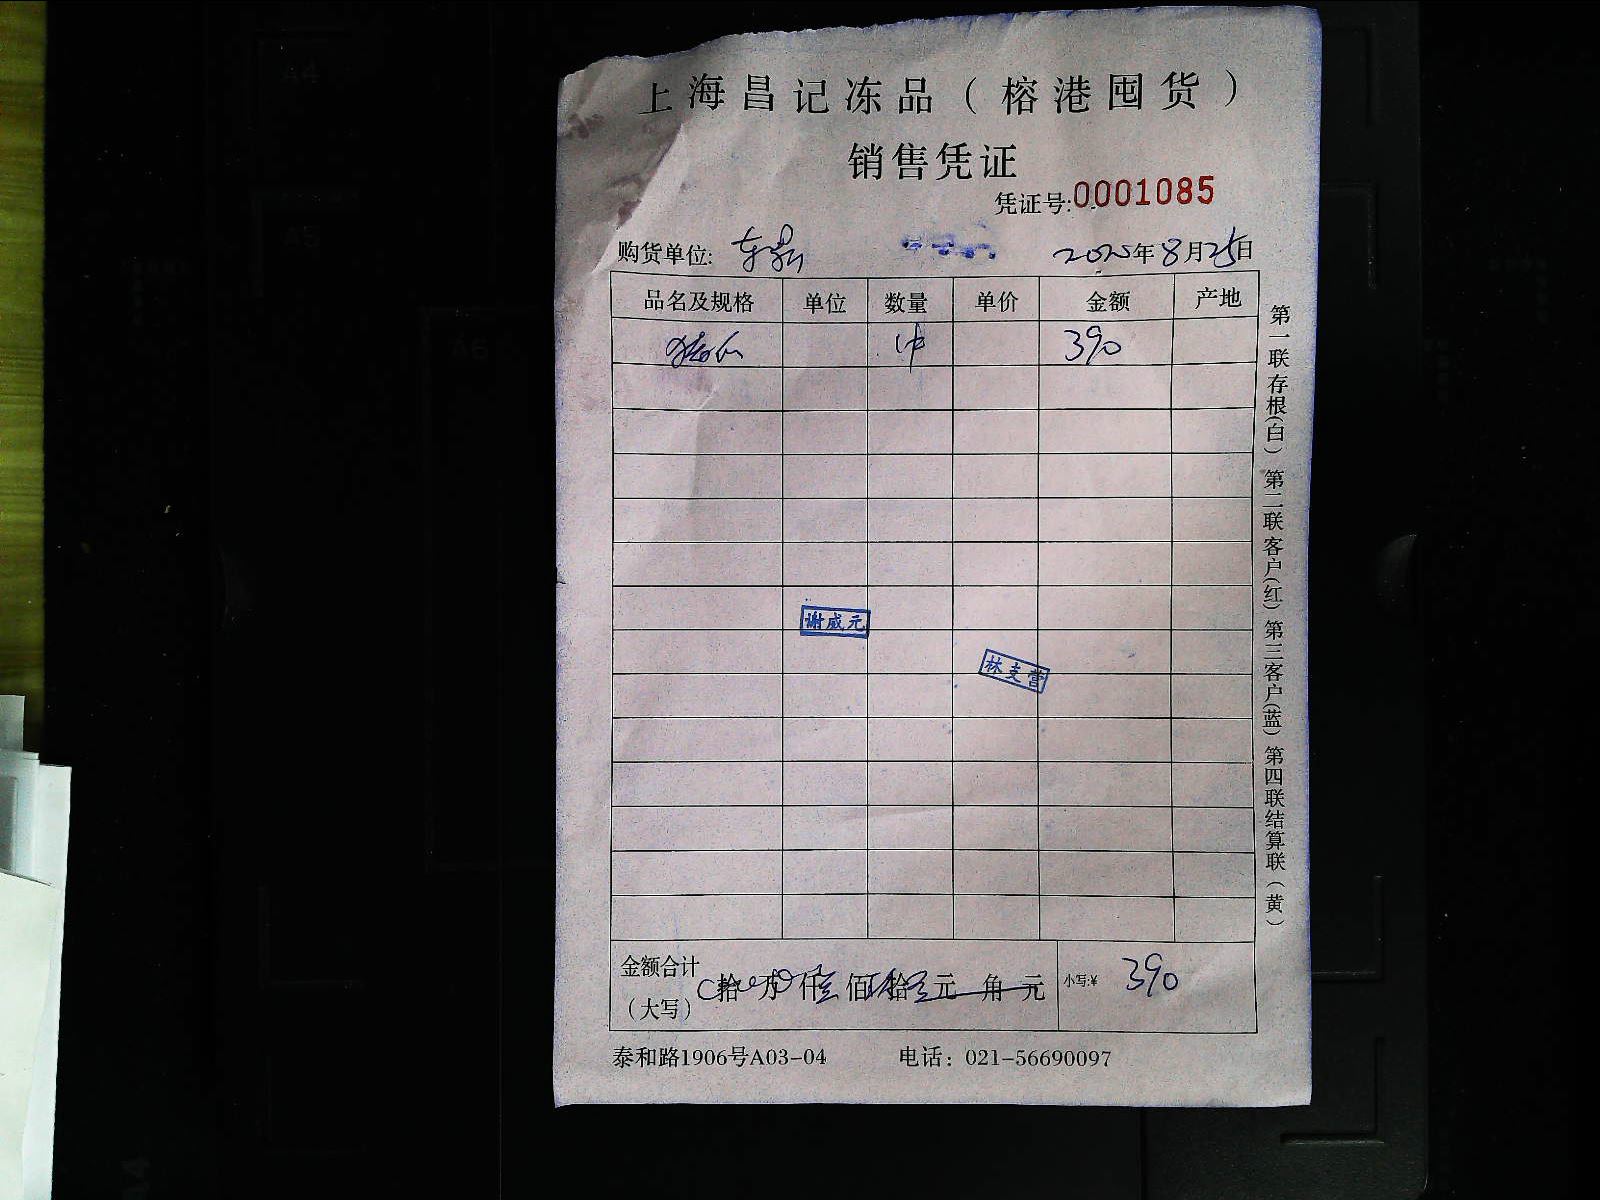 上海昌记冻品（榕港囤货）
销售凭证
凭证号:0001085
购货单位: 2025年8月25日
品名及规格 单位 数量 单价 金额 产地
1件 390
谢成元
林支营
金额合计
（大写） 拾 万 仟 佰 拾 元 角 元 小写:¥ 390
泰和路1906号A03-04 电话：021-56690097
第一联存根(白) 第二联客户(红) 第三客户(蓝) 第四联结算联（黄）
A4
A5
A6